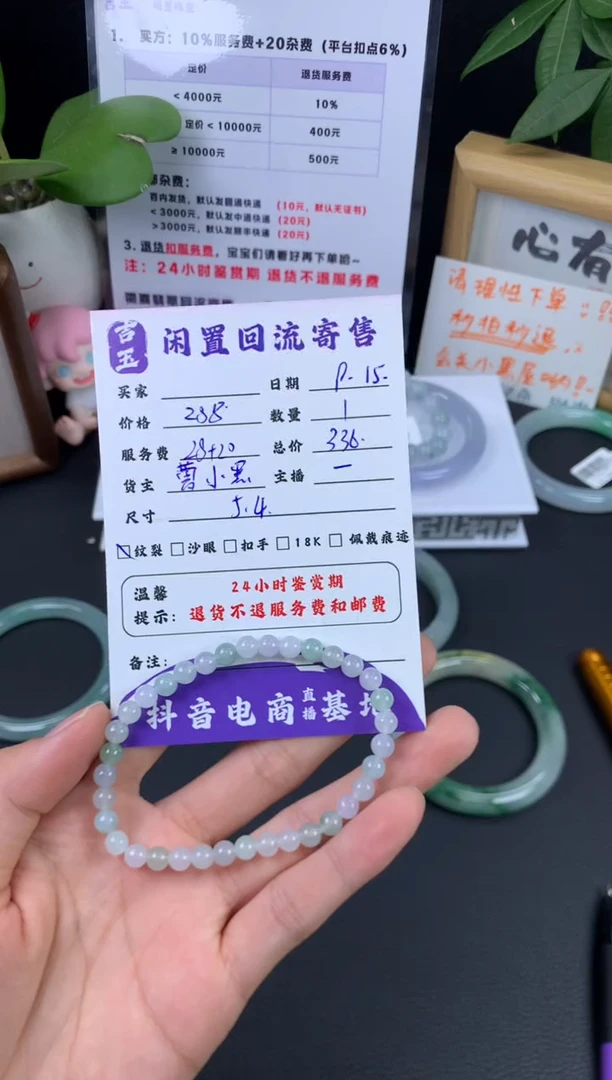 1. 买方：10%服务费+20杂费（平台扣点6%）
定价 退货服务费
< 4000元 10%
定价 < 10000元 400元
≥ 10000元 500元
杂费：
百内发货，默认发圆通快递 （10元，默认无证书）
< 3000元，默认发中通快递 （20元）
> 3000元，默认发顺丰快递 （20元）
3. 退货扣服务费，宝宝们请看好再下单哈~
注：24小时鉴赏期 退货不退服务费
心有
请理性下单
秒拍秒退
会关小黑屋
吉玉 闲置回流寄售
买家 日期 15.
价格 288. 数量 1
服务费 28+20 总价 336.
货主 曹小黑 主播 一
尺寸 5.4.
纹裂 沙眼 扣手 18K 佩戴痕迹
温馨提示： 24小时鉴赏期
退货不退服务费和邮费
备注：
抖音电商直播基地